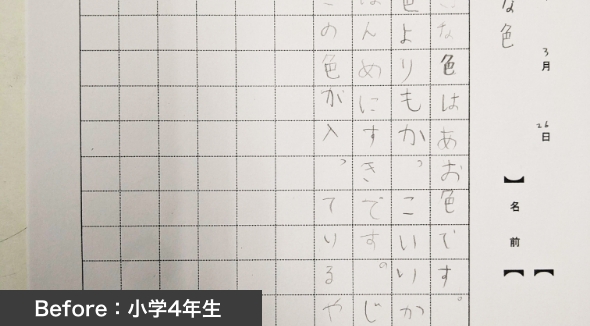 な色
3月26日】
名前【 【
な色はあお色です。
色よりもかっこいいか
んめにすきです。じ
の色が入っているや
Before：小学4年生